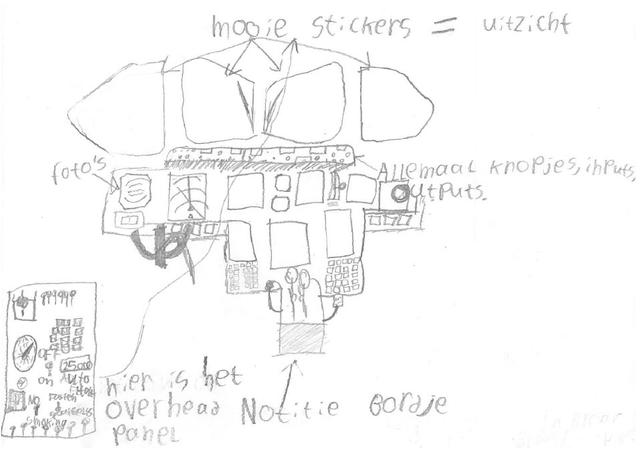 mooie stickers = uitzicht
foto's
Allemaal knopjes, inputs,
outputs.
OFF
25000
ON
Auto
NO
smoking
hier is het
overhead
panel
Notitie Bordje